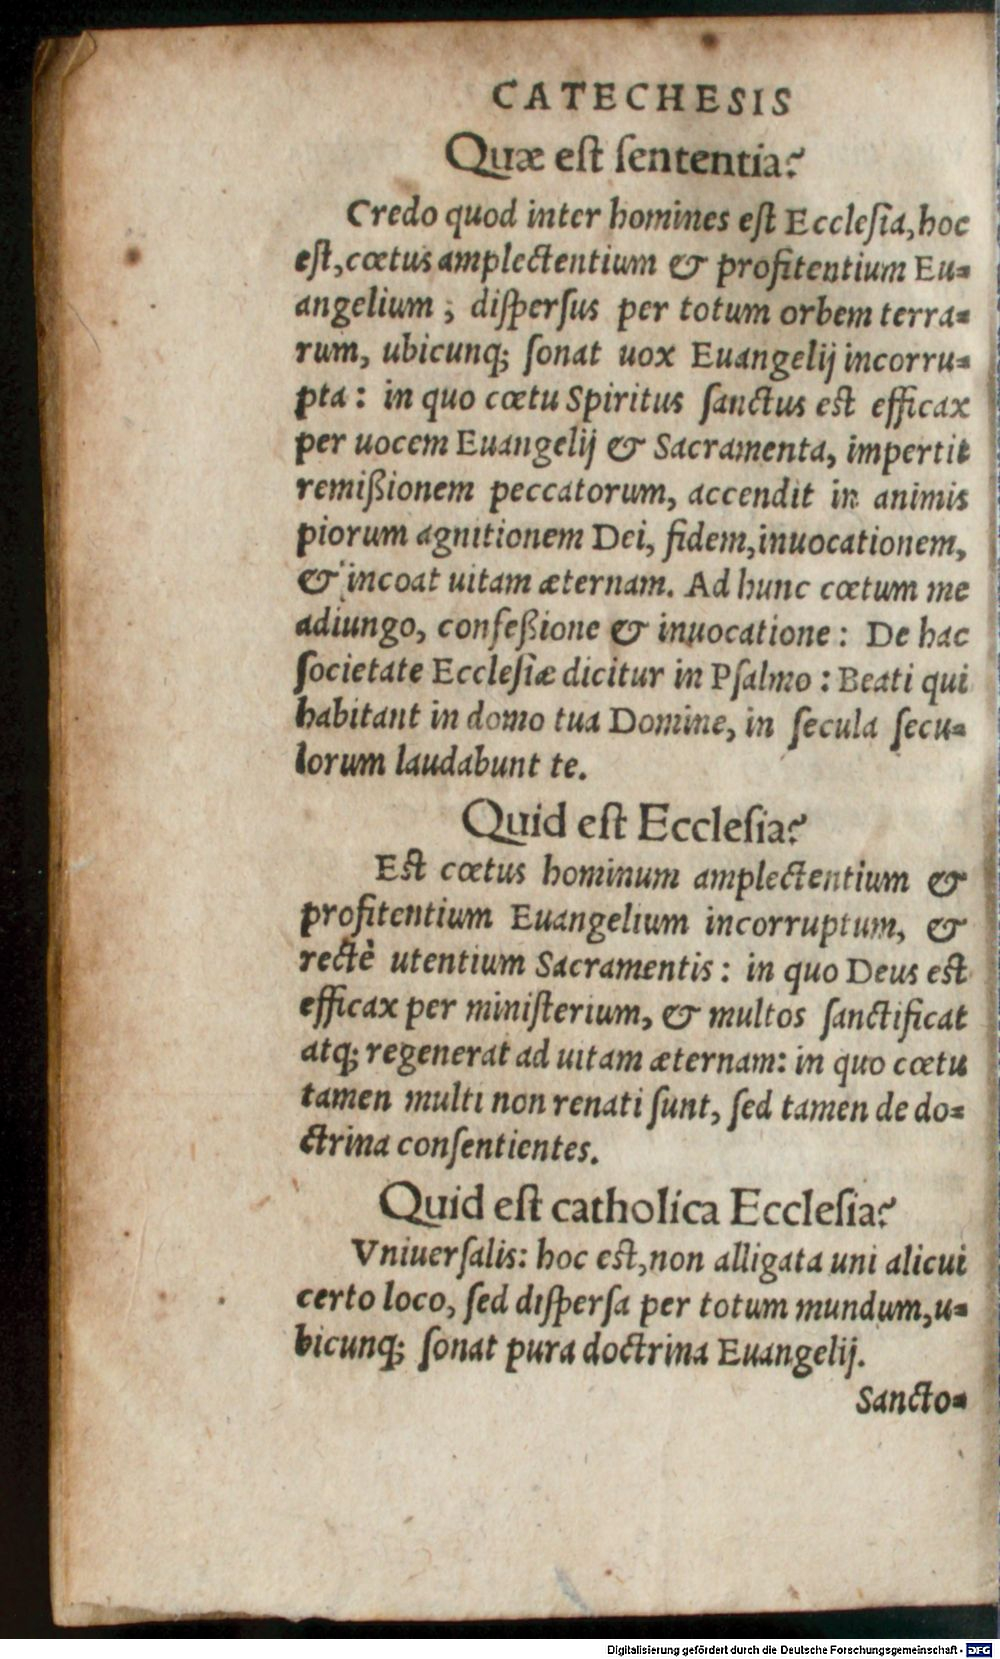 CATECHESIS
Quæ eſt ſententia?
Credo quod inter homines eſt Eccleſia, hoc
eſt, cœtus amplectentium & profitentium Eu=
angelium ; diſperſus per totum orbem terra=
rum, ubicunq; ſonat uox Euangelij incorru=
pta : in quo cœtu Spiritus ſanctus est efficax
per uocem Euangelij & Sacramenta, impertit
remißionem peccatorum, accendit in animis
piorum agnitionem Dei, fidem, inuocationem,
& incoat uitam æternam. Ad hunc cœtum me
adiungo, confeßione & inuocatione : De hac
ſocietate Eccleſiæ dicitur in Pſalmo : Beati qui
habitant in domo tua Domine, in ſecula ſecu=
lorum laudabunt te.
Quid eſt Eccleſia?
Est cœtus hominum amplectentium &
profitentium Euangelium incorruptum, &
rectè utentium Sacramentis : in quo Deus est
efficax per miniſterium, & multos ſanctificat
atq; regenerat ad uitam æternam: in quo cœtu
tamen multi non renati ſunt, ſed tamen de do=
ctrina conſentientes.
Quid eſt catholica Eccleſia?
Vniuerſalis: hoc est, non alligata uni alicui
certo loco, ſed diſperſa per totum mundum, u=
bicunq; ſonat pura doctrina Euangelij.
Sancto=
Digitalisierung gefördert durch die Deutsche Forschungsgemeinschaft - DFG